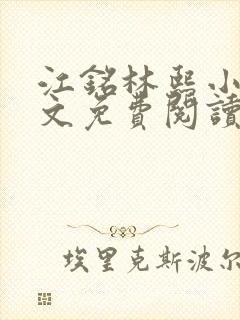 江銘林熙小
文免費閱讀
埃里克斯波尔